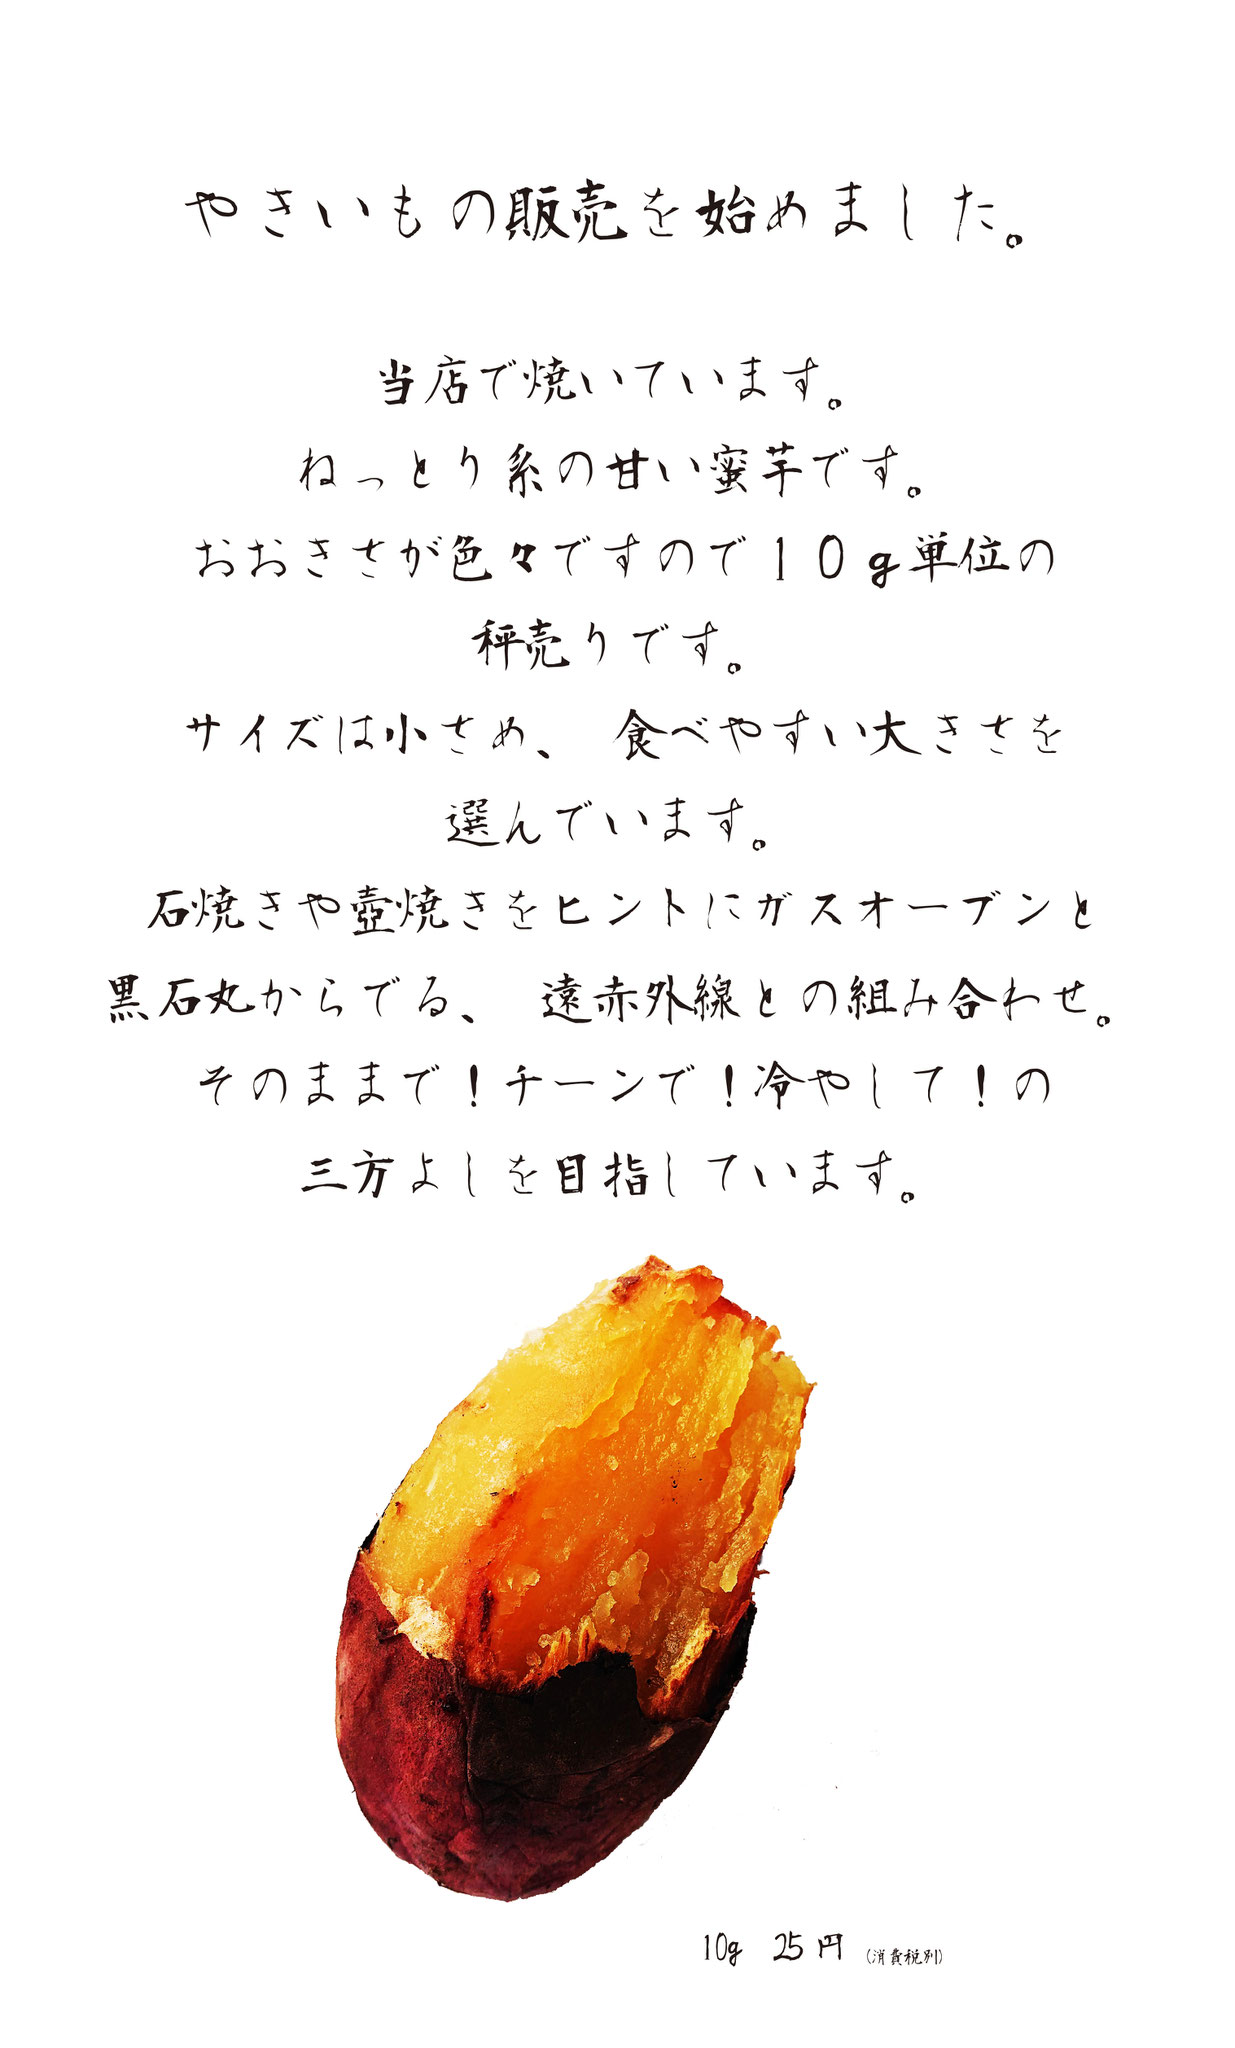 やきいもの販売を始めました。
当店で焼いています。
ねっとり系の甘い蜜芋です。
おおきさが色々ですので１０ｇ単位の
秤売りです。
サイズは小さめ、 食べやすい大きさを
選んでいます。
石焼きや壺焼きをヒントにガスオーブンと
黒石丸からでる、 遠赤外線との組み合わせ。
そのままで！チーンで！冷やして！の
三方よしを目指しています。
10g 25円 (消費税別)